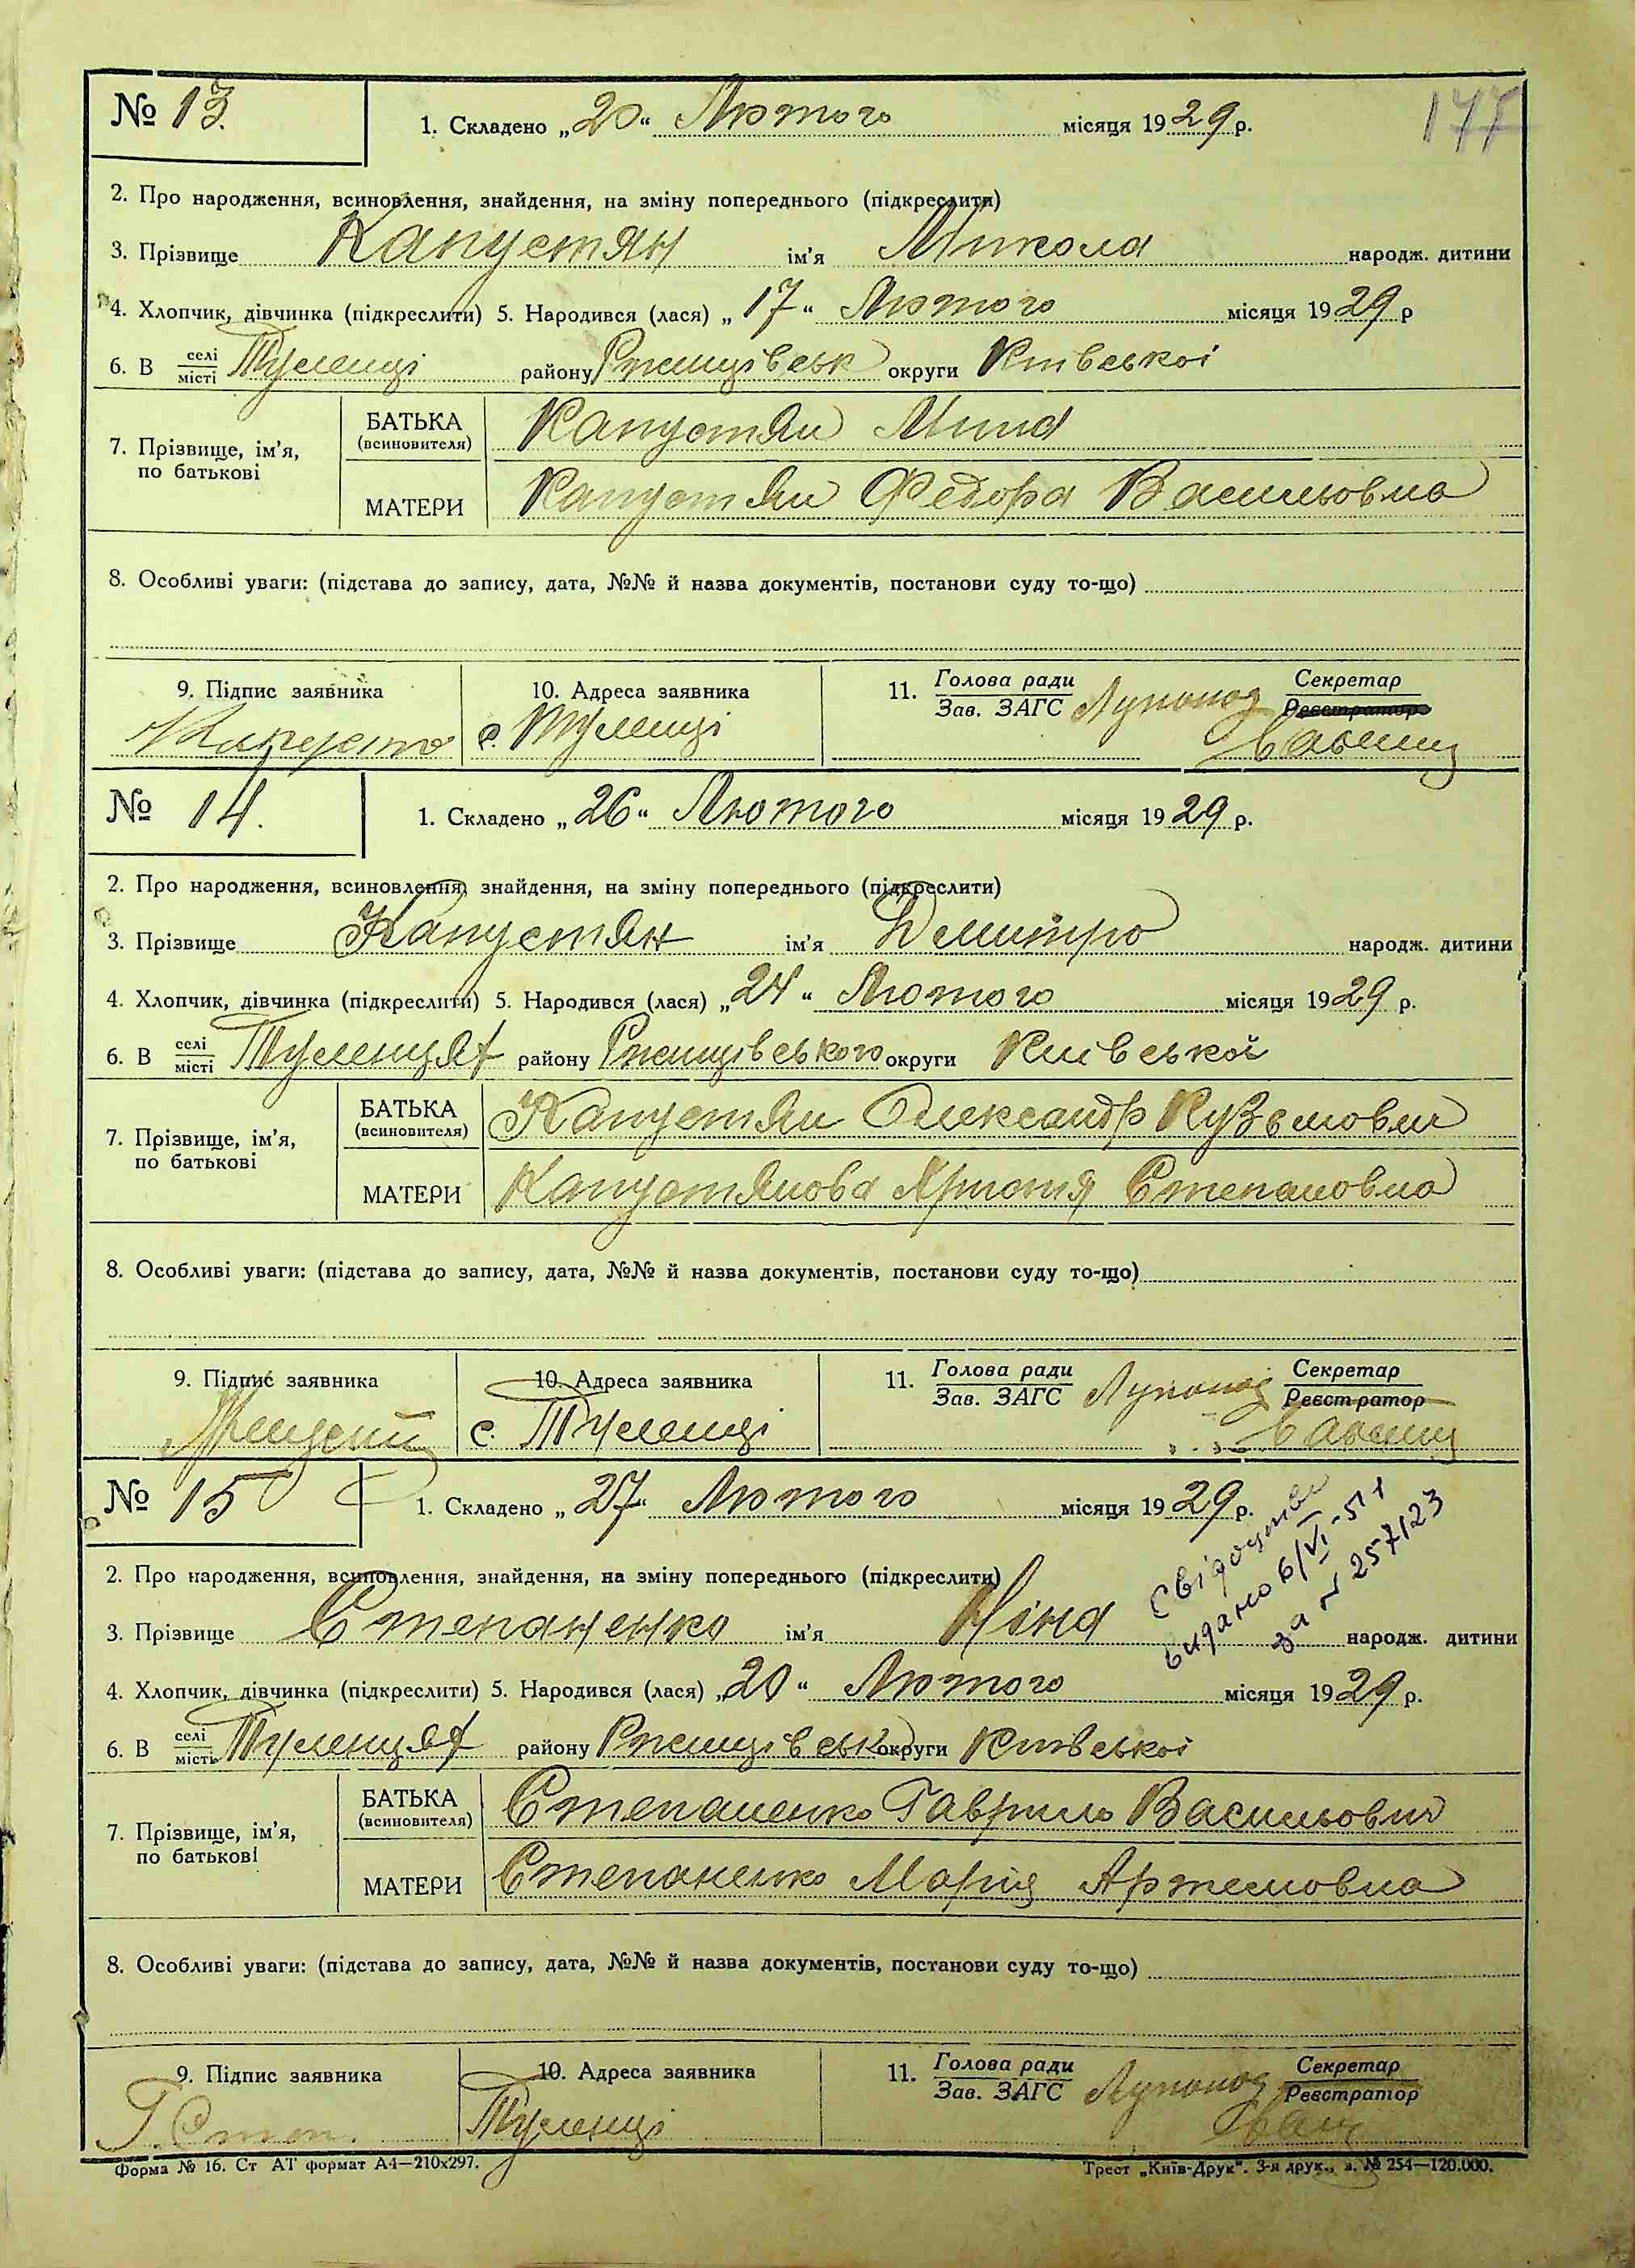 № 13. 1. Складено „20“ Лютого місяця 1929 р. 177
2. Про народження, всиновлення, знайдення, на зміну попереднього (підкреслити)
3. Прізвище Капустян ім'я Микола народж. дитини
4. Хлопчик, дівчинка (підкреслити) 5. Народився (лася) „17“ Лютого місяця 1929 р
6. В селі/місті Туленці району Ржищівськ округи Київської
7. Прізвище, ім'я, по батькові
БАТЬКА (всиновителя) Капустян
МАТЕРИ Капустян Федора Васильовна
8. Особливі уваги: (підстава до запису, дата, №№ й назва документів, постанови суду то-що)
9. Підпис заявника 10. Адреса заявника 11. Голова ради/Зав. ЗАГС Секретар/Реєстратор
с. Туленці
№ 14. 1. Складено „26“ Лютого місяця 1929 р.
2. Про народження, всиновлення, знайдення, на зміну попереднього (підкреслити)
3. Прізвище Капустян ім'я Дмитро народж. дитини
4. Хлопчик, дівчинка (підкреслити) 5. Народився (лася) „24“ Лютого місяця 1929 р.
6. В селі/місті Туленцях району Ржищівського округи Київської
7. Прізвище, ім'я, по батькові
БАТЬКА (всиновителя) Капустян Олександр Кузьмович
МАТЕРИ Капустянова Христя Степановна
8. Особливі уваги: (підстава до запису, дата, №№ й назва документів, постанови суду то-що)
9. Підпис заявника 10. Адреса заявника 11. Голова ради/Зав. ЗАГС Секретар/Реєстратор
с. Туленці
№ 15 1. Складено „27“ Лютого місяця 1929 р.
Свідоцтво
видано 6/VI-51
за № 257123
2. Про народження, всиновлення, знайдення, на зміну попереднього (підкреслити)
3. Прізвище Степаненко ім'я Ніна народж. дитини
4. Хлопчик, дівчинка (підкреслити) 5. Народився (лася) „20“ Лютого місяця 1929 р.
6. В селі/місті Туленцях району Ржищівськ округи Київської
7. Прізвище, ім'я, по батькові
БАТЬКА (всиновителя) Степаненко Гаврило Васильович
МАТЕРИ Степаненко Марія Артемовна
8. Особливі уваги: (підстава до запису, дата, №№ й назва документів, постанови суду то-що)
9. Підпис заявника 10. Адреса заявника 11. Голова ради/Зав. ЗАГС Секретар/Реєстратор
Г. Степ. Туленці
Форма № 16. Ст АТ формат А4—210х297. Трест „Київ-Друк“. 3-я друк., з. № 254—120.000.